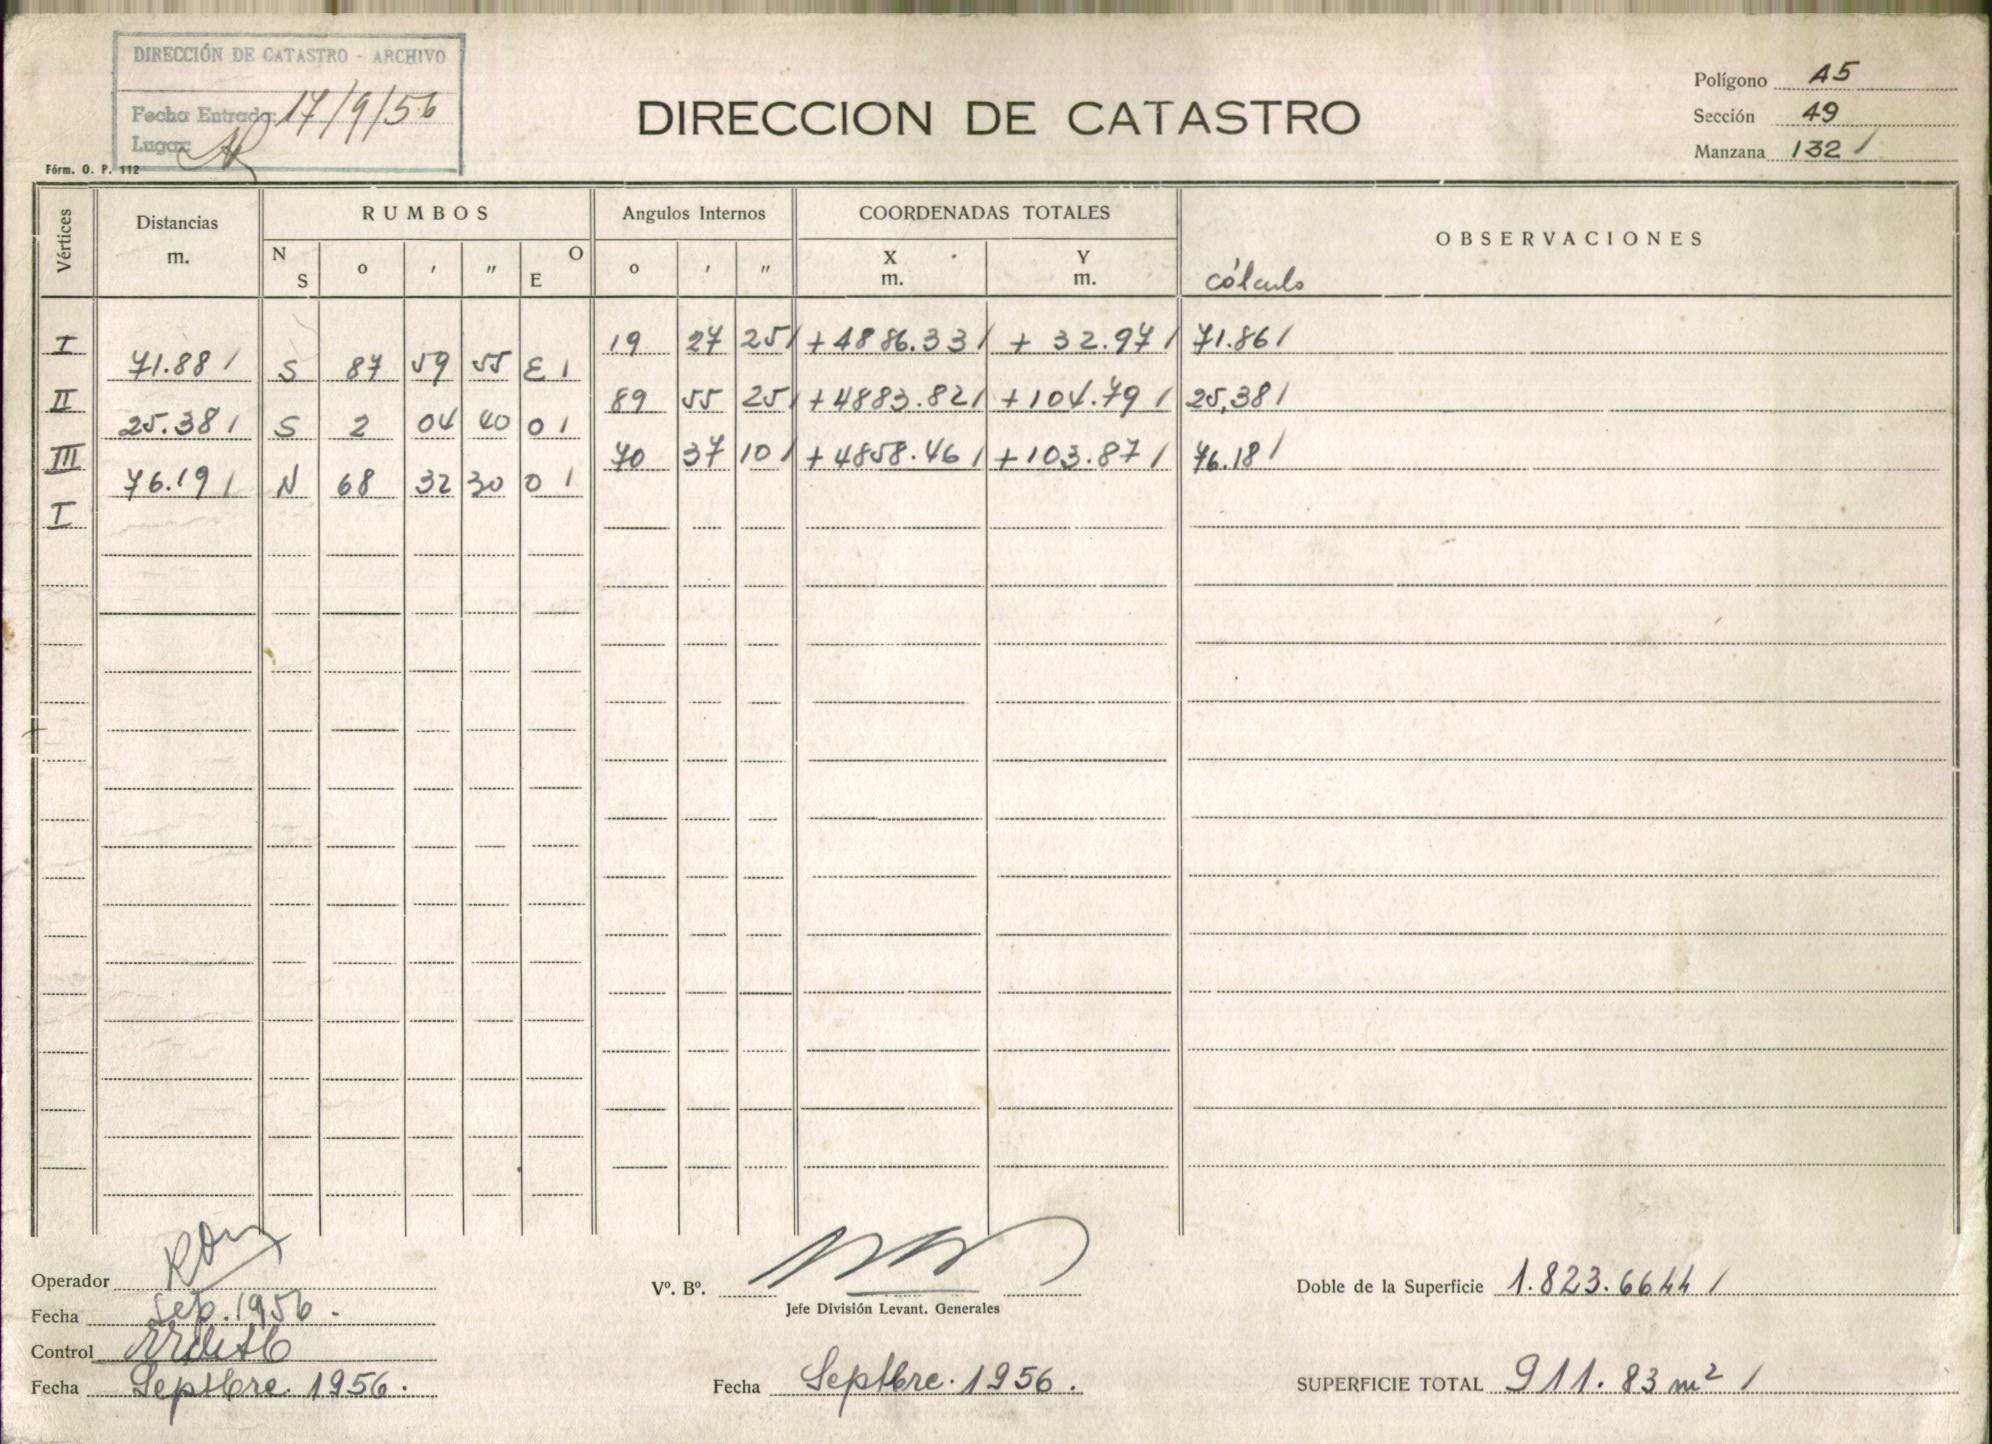 DIRECCIÓN DE CATASTRO - ARCHIVO
Fecha Entrada: 17/9/56
Lugar:
Fórm. O. P. 112
DIRECCION DE CATASTRO
Polígono A5
Sección 49
Manzana 132 /
Vértices
Distancias m.
RUMBOS
N S
o ' "
O E
Angulos Internos
o ' "
COORDENADAS TOTALES
X m.
Y m.
OBSERVACIONES
cálculo
I 19 27 25 / +4886.33 / + 32.97 / 71.86 /
71.88 / S 87 59 55 E /
II 89 55 25 / +4883.82 / +104.79 / 25,38 /
25.38 / S 2 04 40 O /
III 70 37 10 / +4858.46 / +103.87 / 76.18 /
76.19 / N 68 32 30 O /
I
Operador
Fecha Sep. 1956.
Control
Fecha Septbre. 1956.
Vº. Bº.
Jefe División Levant. Generales
Fecha Septbre. 1956.
Doble de la Superficie 1.823.6644 /
SUPERFICIE TOTAL 911.83 m² /